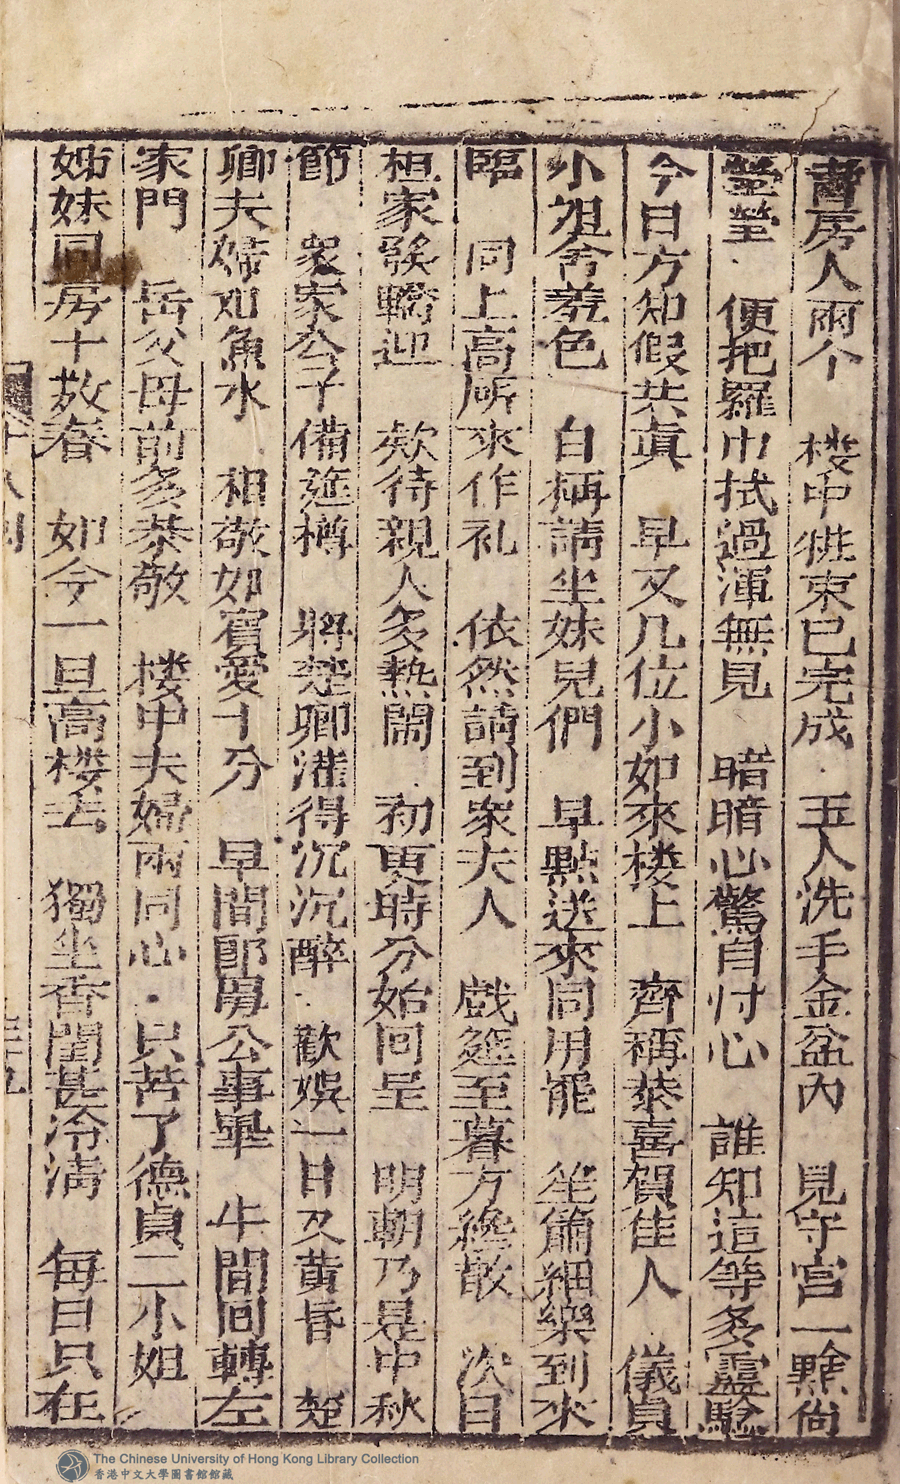 書房人兩个　楼中粧束已完成　五人洗手金盆內　見守宮一點尚
瑩瑩　便把羅巾拭過渾無見　暗暗心驚自忖心　誰知這等多靈驗
今日方知假共真　早又几位小如來楼上　齊稱恭喜賀佳人　儀貞
小姐含羞色　自搙請坐妹兒們　早點送來同用罷　笙簫細樂到來
臨　同上高所來作礼　依然請到衆夫人　戲筵至暮方纔散　次日
桓家發轎迎　欸待親人多熱閙　初更時分始回呈　明朝乃是中秋
節　衆家公子備筵樽　將楚卿灌得沉沉醉　歡娛一日又黃昏　楚
卿夫婦如魚水　相敬如賓愛十分　早間郎舅公事畢　午間回轉左
家門　岳父母前多恭敬　楼中夫婦兩同心　只苦了德貞二小姐
姊妹同房十数春　如今一旦高楼去　獨坐香閨甚冷清　每日只在
十八回
三十九
The Chinese University of Hong Kong Library Collection
香港中文大學圖書館館藏